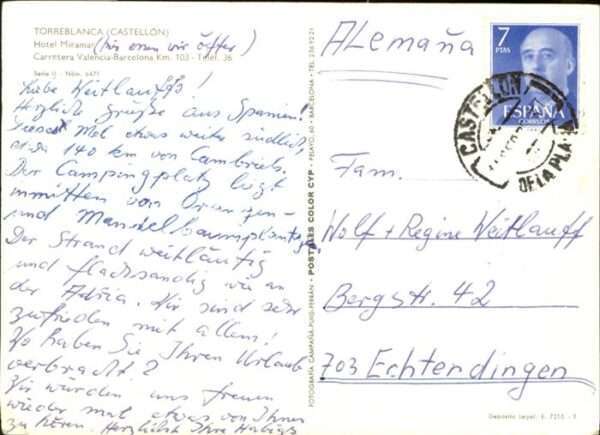 TORREBLANCA (CASTELLÓN)
Hotel Miramar (hier essen wir öfter)
Carretera Valencia-Barcelona Km. 103 - Telef. 36
Serie II - Núm. 6471
Liebe Weitlauffs!
Herzliche Grüße aus Spanien!
Dieses Mal etwas weiter südlich,
etwa 140 km von Cambrils.
Der Campingplatz liegt
inmitten von Orangen-
und Mandelbaumplantagen
Der Strand weitläufig
und flachsandig wie an
der Adria. Wir sind sehr
zufrieden mit allem!
Wo haben Sie Ihren Urlaub
verbracht?
Wir würden uns freuen
wieder mal etwas von Ihnen
zu hören. Herzlichst Ihre
FOTOGRAFIA CAMPAÑA PUIG-FERRAN - POSTALES COLOR CYP - PELAYO, 60 - BARCELONA - TEL.
Alemaña
7
PTAS
ESPAÑA
CORREOS
CASTELLON
DE LA PLANA
Fam.
Wolf + Regine Weitlauff
Bergstr. 42
703 Echterdingen
Depósito Legal, B. 7213 -